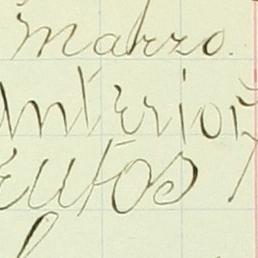 Marzo.
Anterior
eutos